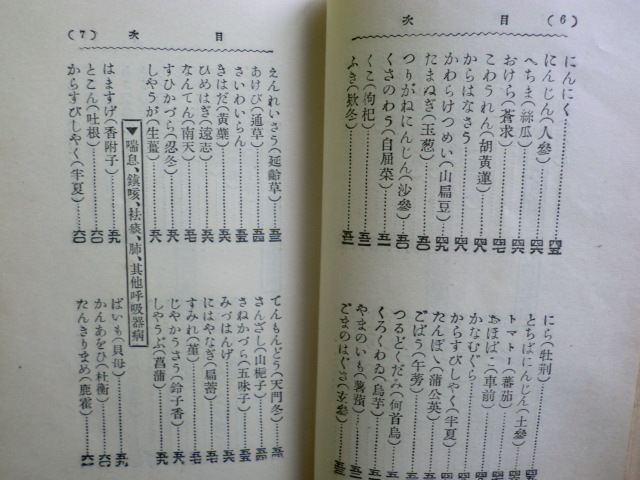 (6) 目次
にんにく……四五
にんじん(人參)……四六
へちま(絲瓜)……四六
おけら(蒼朮)……四六
こわうれん(胡黃蓮)……四七
からはなさう……四八
かわらけつめい(山扁豆)……四九
たまねぎ(玉葱)……四九
つりがねにんじん(沙參)……五〇
くさのわう(白屈菜)……五一
くこ(枸杞)……五一
ふき(欵冬)……五二
にら(牡荊)
とちばにんじん(土參)
トマトー(蕃茄)
おほばこ(車前)
かなむぐら
からすびしやく(半夏)
たんぽゝ(蒲公英)
ごばう(午蒡)
つるどくだみ(何首烏)
くろくわゐ(烏芋)
やまのいも(薯蕷)
ごまのはぐさ(玄參)
目次 (7)
えんれいさう(延齡草)……五三
あけび(通草)……五四
さいわいらん……五五
きはだ(黃蘗)……五六
ひめはぎ(遠志)……五六
なんてん(南天)……五七
すひかづら(忍冬)……五八
しやうが(生薑)……五八
▼喘息、鎮咳、祛痰、肺、其他呼吸器病
はますげ(香附子)……五九
とこん(吐根)……六〇
からすびしやく(半夏)……六〇
てんもんどう(天門冬)
さんざし(山梔子)
さねかづら(五味子)
みづはんげ
にはやなぎ(扁蓄)
すみれ(菫)
じやかうさう(鈴子香)
しやうぶ(菖蒲)
ばいも(貝母)
かんあをひ(杜衡)
たんきりまめ(鹿藿)